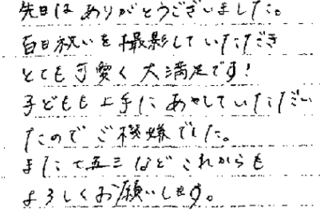 先日はありがとうございました。
百日祝いを撮影していただき
とても可愛く大満足です!
子どもも上手にあやしていただい
たのでご機嫌でした。
また七五三などこれからも
よろしくお願いします。